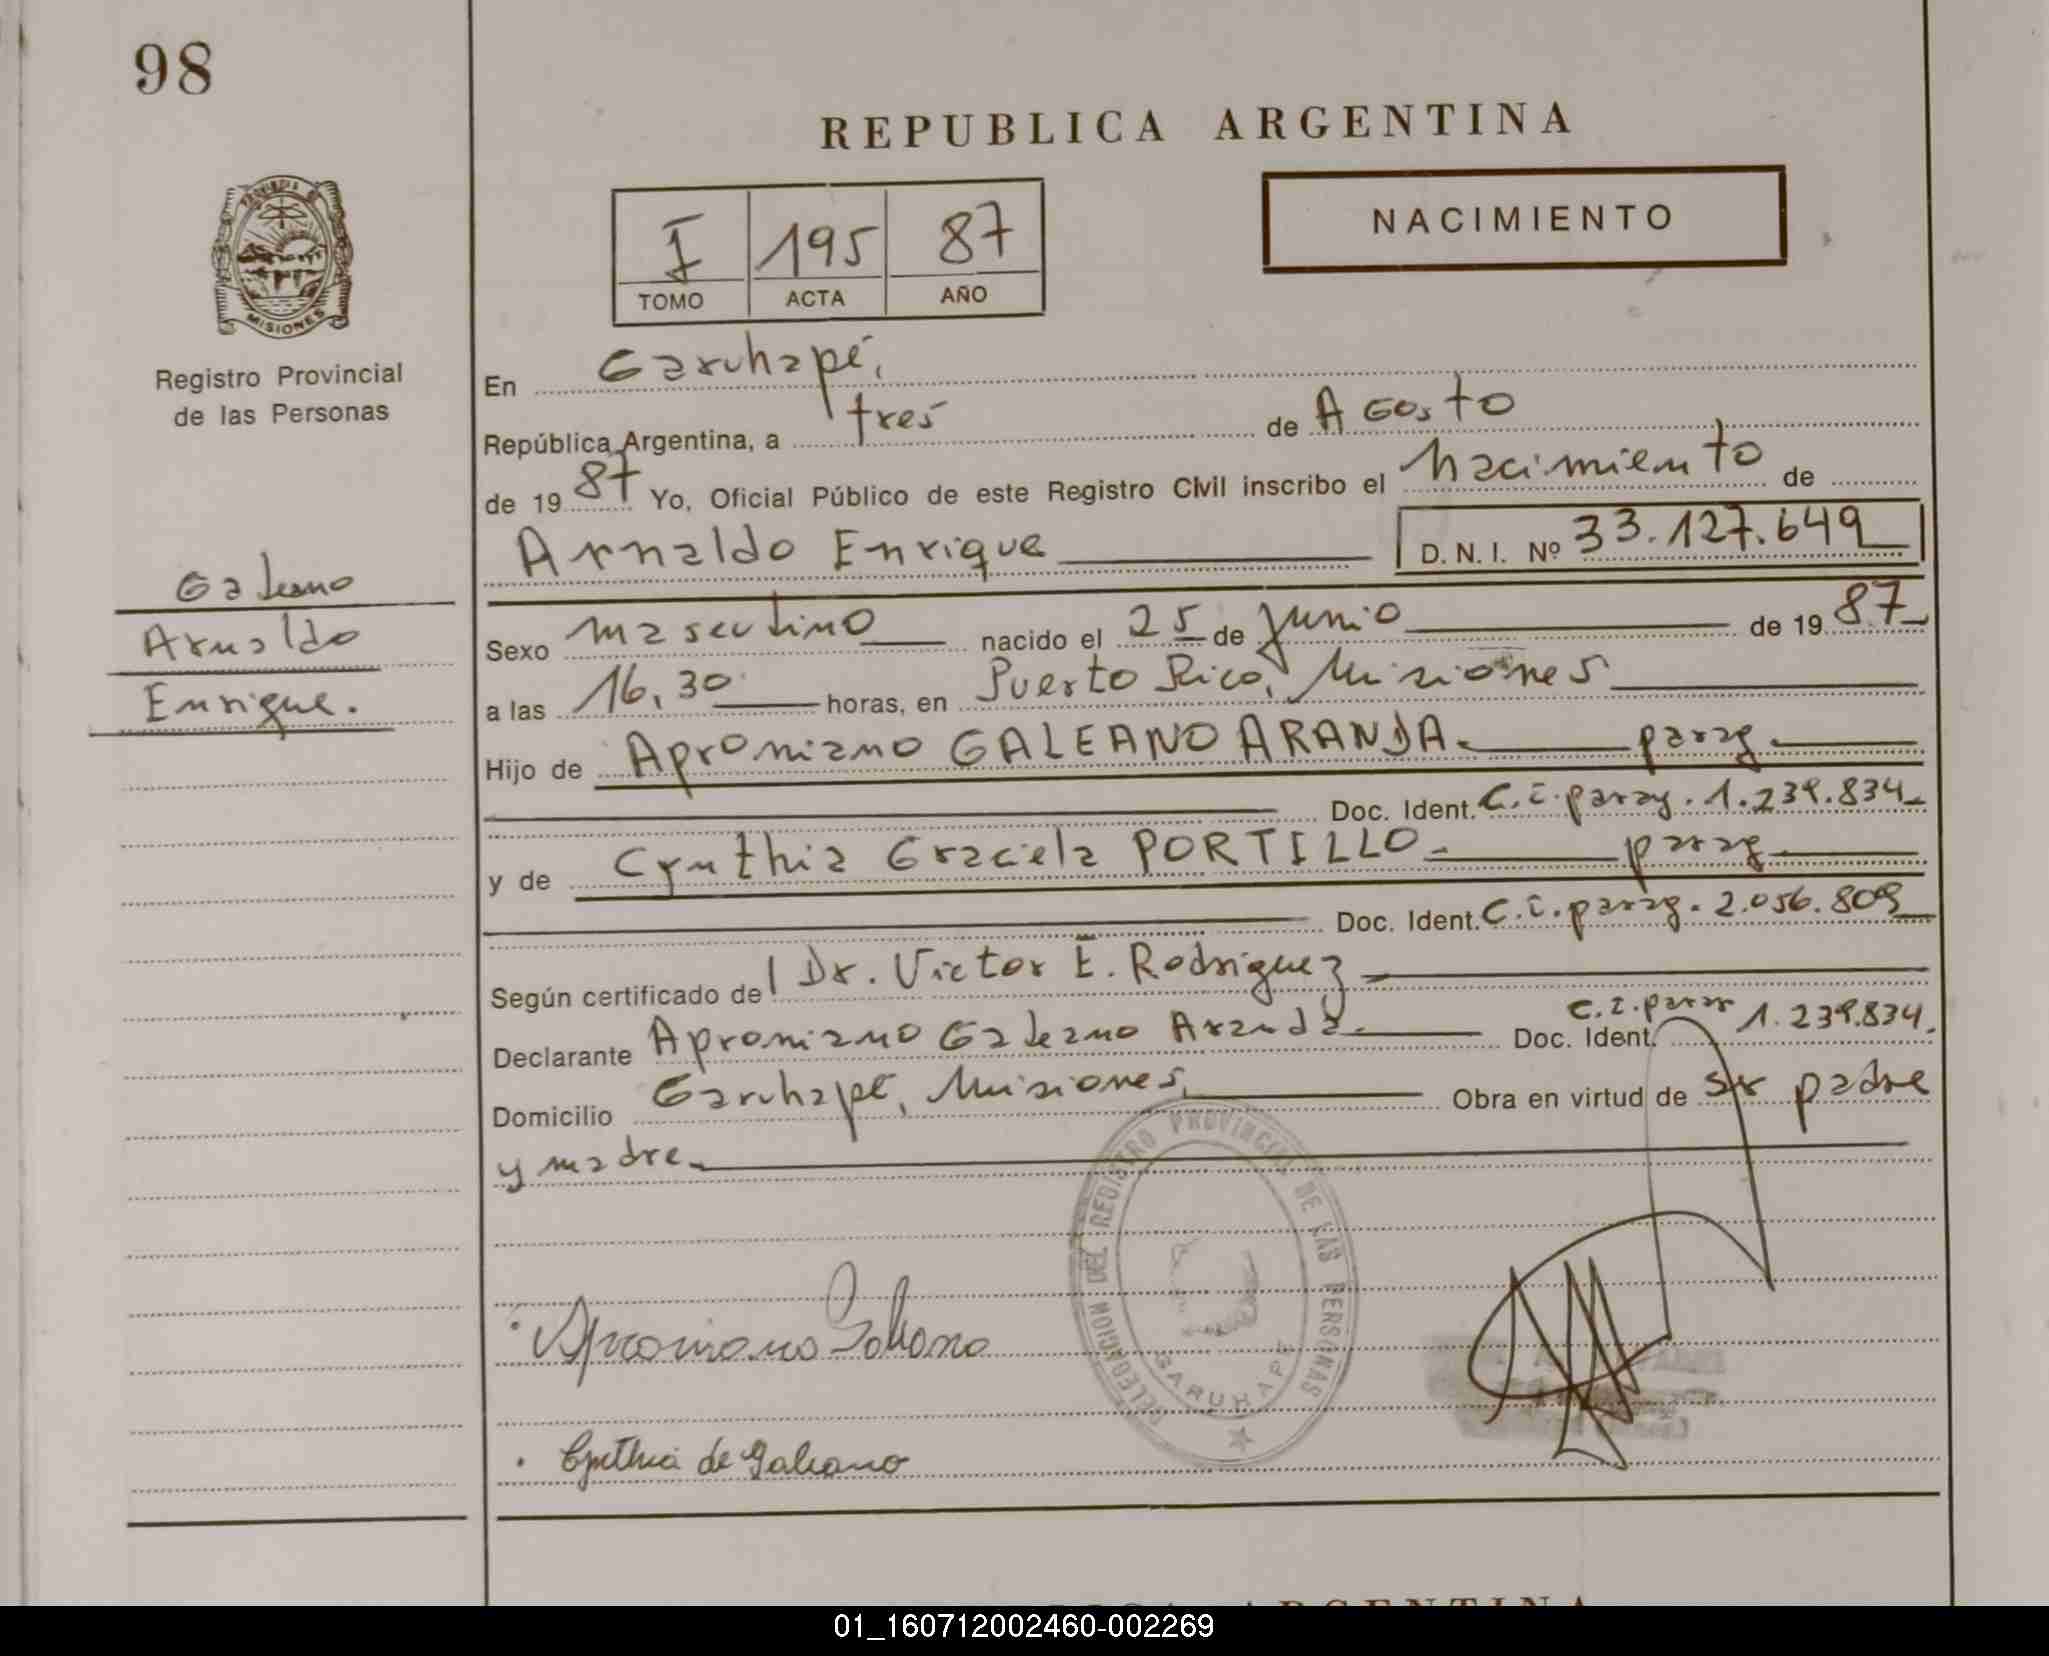 98
REPUBLICA ARGENTINA
PROVINCIA DE
MISIONES
Registro Provincial
de las Personas
I 195 87
TOMO ACTA AÑO
NACIMIENTO
En Garuhapé,
República Argentina, a tres de Agosto
de 1987 Yo, Oficial Público de este Registro Civil inscribo el nacimiento de
Arnaldo Enrique D. N. I. Nº 33.127.649
Galeano
Arnaldo
Enrique.
Sexo masculino nacido el 25 de junio de 1987
a las 16,30 horas, en Puerto Rico, Misiones
Hijo de Apromiano GALEANO ARANDA. parag.
Doc. Ident. C.I. parag. 1.239.834
y de Cynthia Graciela PORTILLO parag
Doc. Ident. C.I. parag. 2.056.809
Según certificado del Dr. Victor E. Rodriguez
Declarante Apromiano Galeano Aranda. Doc. Ident. C.I. parag 1.239.834.
Domicilio Garuhapé, Misiones, Obra en virtud de ser padre
y madre.
DELEGACION DEL REGISTRO PROVINCIAL DE LAS PERSONAS
GARUHAPE
Apromiano Galeano
Cynthia de Galeano
ARGENTINA
01_160712002460-002269